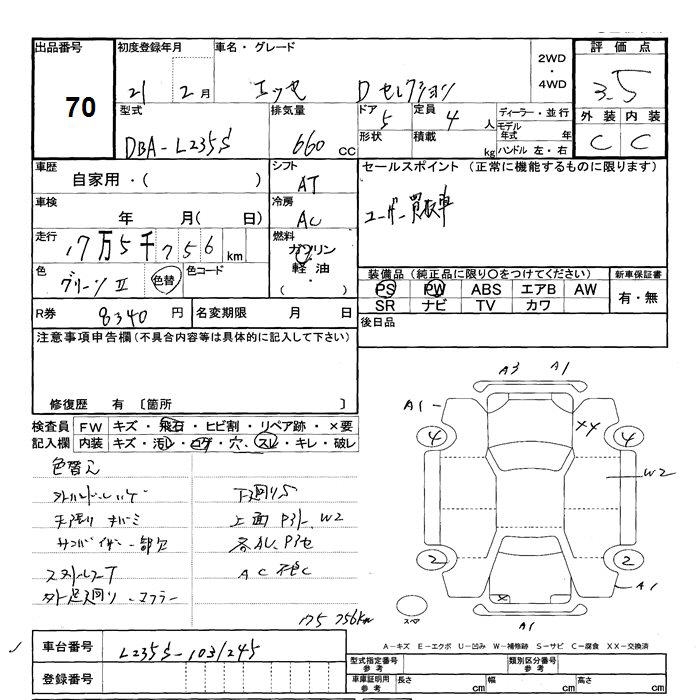 出品番号 初度登録年月 車名・グレード 2WD・4WD 評価点
70 21 2月 エッセ Dセレクション 3.5
型式 排気量 ドア 定員 ディーラー・並行 外装 内装
DBA-L235S 660cc 5 4人 モデル年式 年 C C
形状 積載 kg ハンドル 左・右
車歴 自家用・( ) シフト AT セールスポイント (正常に機能するものに限ります)
車検 年 月( 日) 冷房 AC ユーザー買取車
走行 17万5千756km 燃料 ガソリン
色 グリーンII 色替 色コード 軽油 ( ・ )
装備品(純正品に限り○をつけてください) 新車保証書
PS PW ABS エアB AW 有・無
SR ナビ TV カワ
R券 8340円 名変期限 月 日 後日品
注意事項申告欄(不具合内容等は具体的に記入して下さい)
修復歴 有 〔箇所 〕
検査員 FW キズ・飛石・ヒビ割・リペア跡・×要
記入欄 内装 キズ・汚レ・コゲ・穴・スレ・キレ・破レ
色替え
下廻りS
上面 W2
サンバイザー一部欠
AC
175756km
A3 A1
A1 X4
4 4
W2
2 2
A1
スペア A1
A-キズ E-エクボ U-凹み W-補修跡 S-サビ C-腐食 XX-交換済
車台番号 L235S-1031245
登録番号
型式指定番号 参考 類別区分番号 参考
車庫証明用 参考 長さ cm 幅 cm 高さ cm